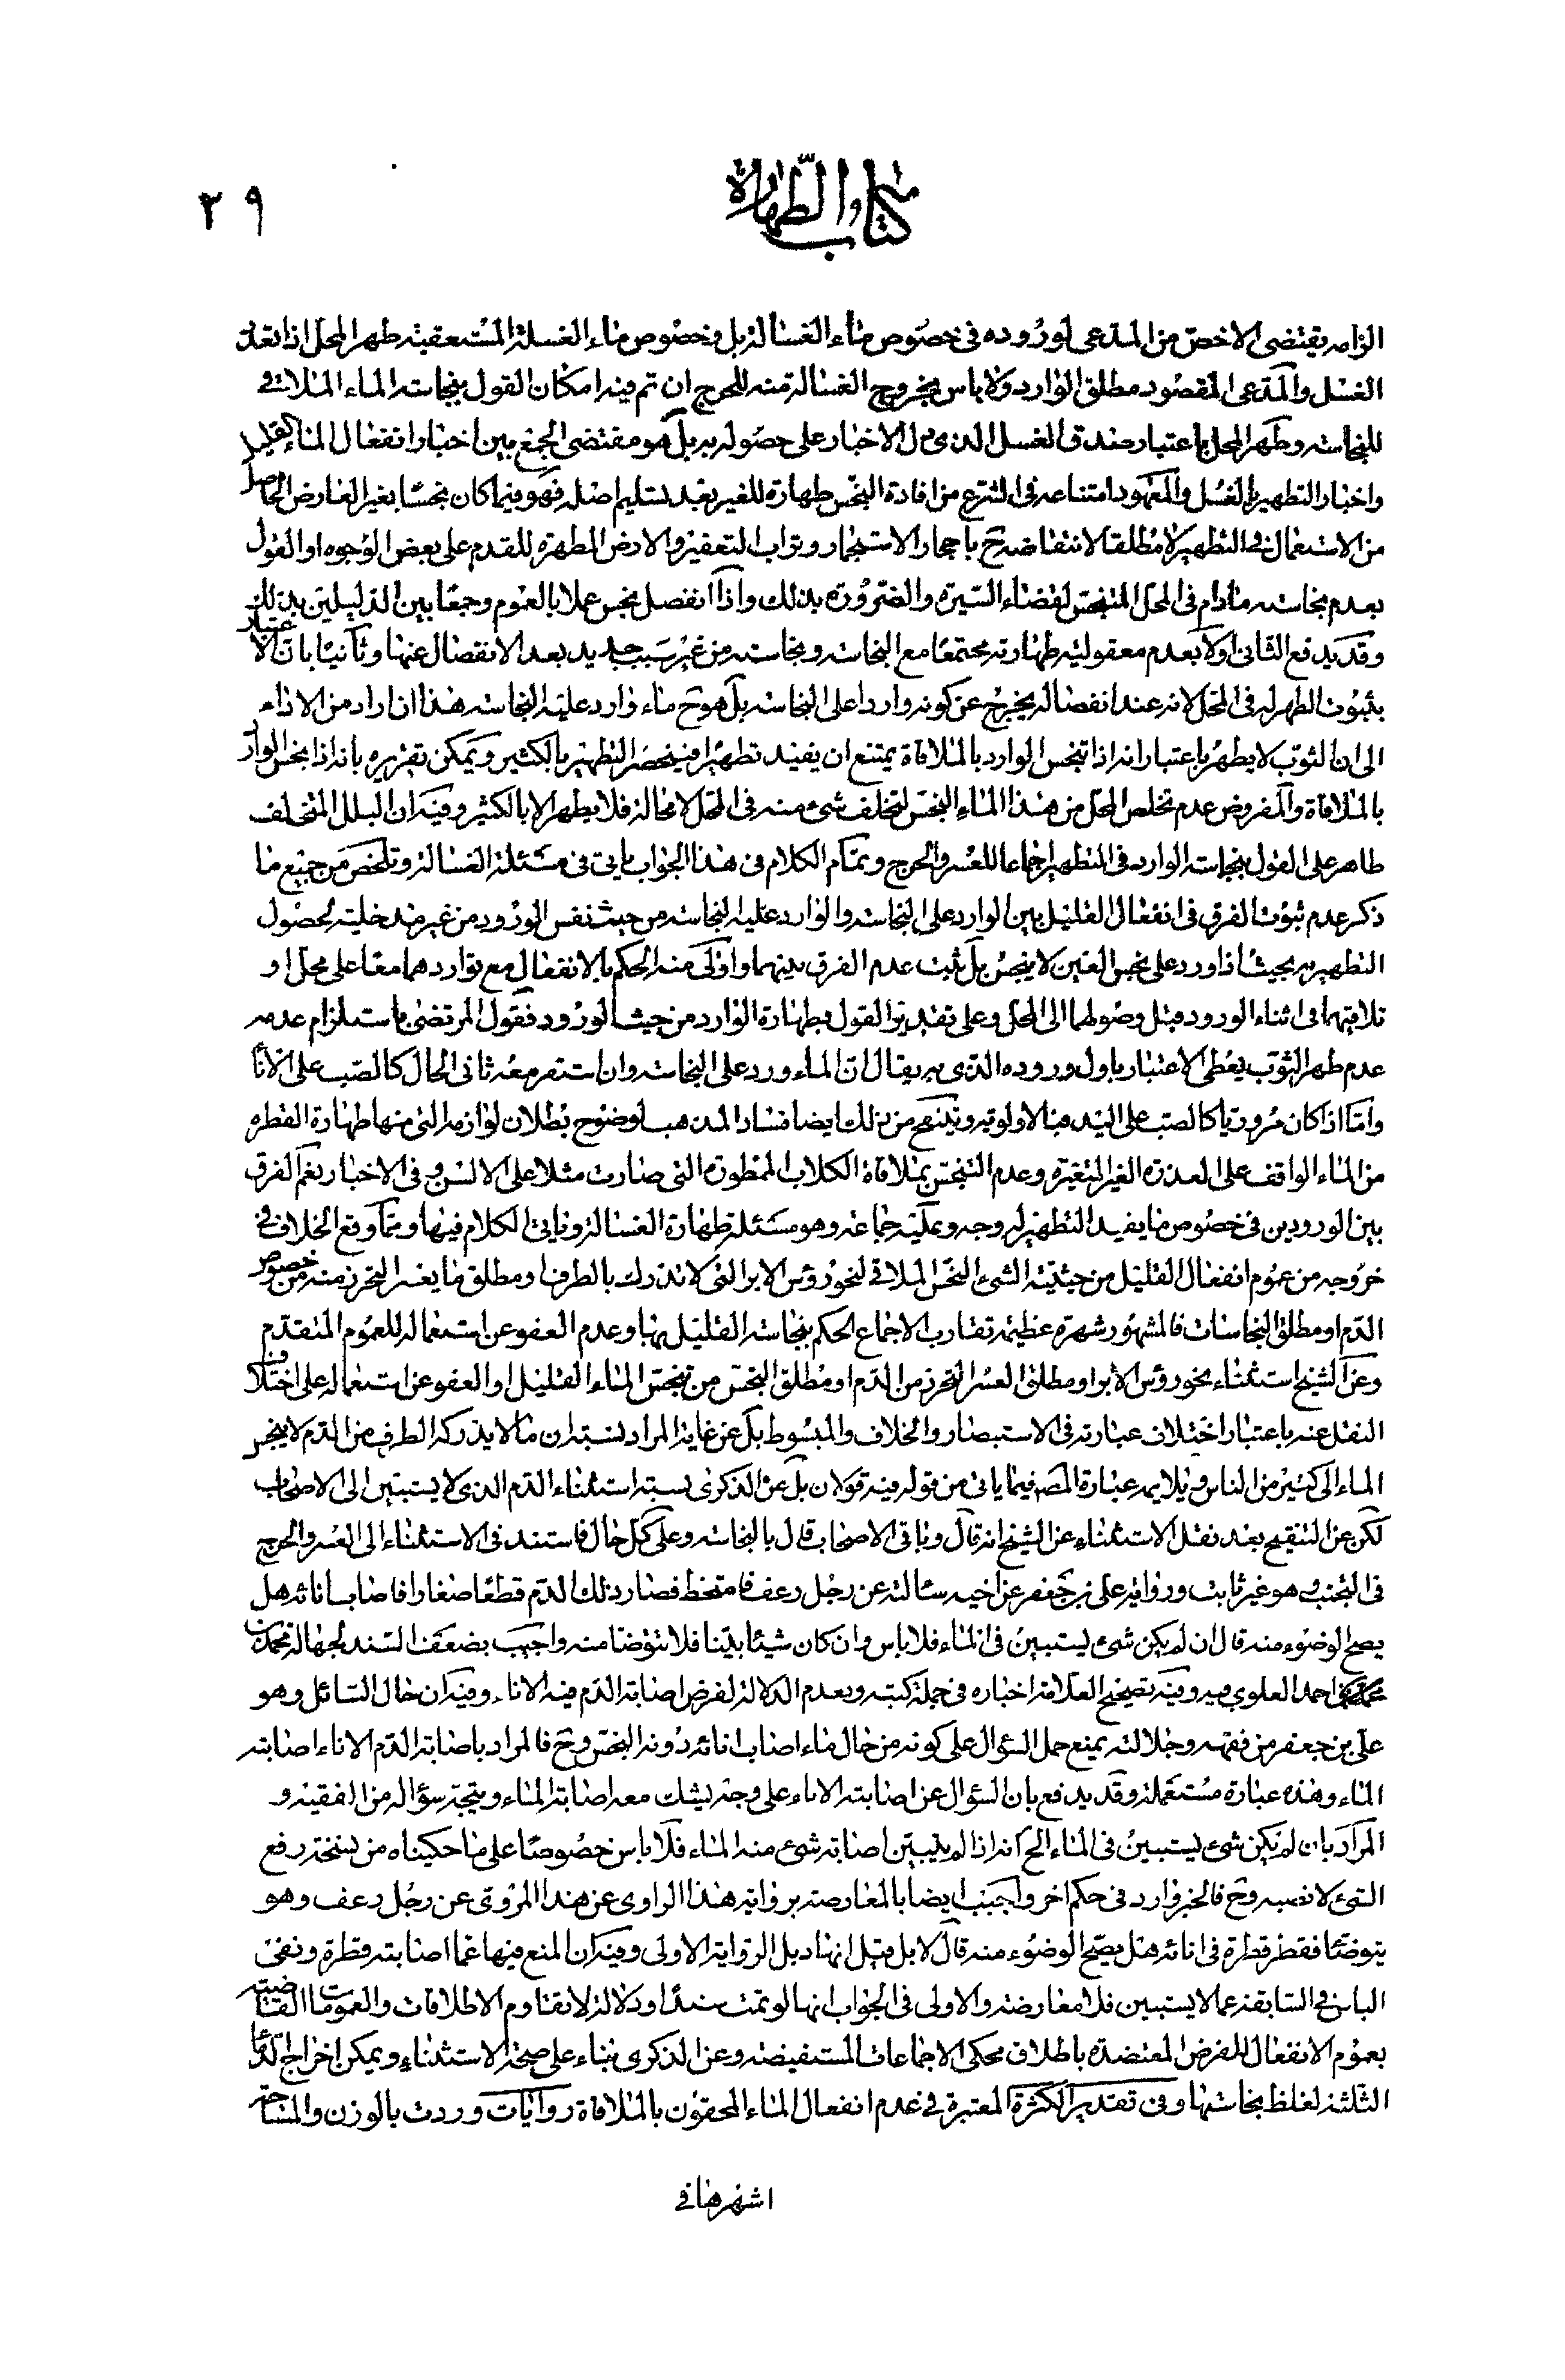 كتاب الطهارة
٣٩
الزامه يقتضى الاخصّ من المدعى لوروده فى خصوص ماء الغسالة بل وخصوص ماء الغسلة المستعقبة طهر المحل اذا تعدد
الغسل والمدعى المقصود مطلق الوارد ولا باس بخروج الغسالة منه للحرج ان تم فيه امكان القول بنجاسة الماء الملاقى
للنجاسة وطهر المحل باعتبار صدق الغسل الذى دل الاخبار على حصوله به بل هو مقتضى الجمع بين اخبار انفعال الماء القليل
واخبار التطهير بالغسل والمعهود امتناعه فى الشرع من افادة النجس طهارة للغير بعد تسليم اصله فهو فيما كان نجسا بغير العارض الحاصل
من الاستعمال فى التطهير لا مطلقا لانتقاضه ح باحجار الاستجمار وتراب التعفير والارض المطهرة للقدم على بعض الوجوه او القول
بعدم نجاسته مادام فى المحل المتنجس لقضاء السيرة والضرورة بذلك واذا انفصل نجس عملا بالعموم وجمعا بين الدليلين بذلك
وقد يدفع الثانى اولا بعدم معقولية طهارته مجتمعا مع النجاسة ونجاسته من غير سبب جديد بعد الانفصال عنها وثانيا بان الاعتبار
بثبوت الطهر له فى المحل لانه عند انفصاله يخرج عن كونه واردا على النجاسة بل هو ح ماء وارد عليه النجاسة هذا ان اراد من الاداء
الى ان الثوب لا يطهر باعتبار انه اذا تنجس الوارد بالملاقاة يمتنع ان يفيد تطهيرا فينحصر التطهير بالكثير ويمكن تقريره بانه اذا نجس الوارد
بالملاقاة والمفروض عدم تخلص المحل من هذا الماء النجس لتخلف شىء منه فى المحل لا محالة فلا يطهر الا بالكثير وفيه ان البلل المتخلف
طاهر على القول بنجاسة الوارد فى التطهير اجماعا للعسر والحرج وتمام الكلام فى هذا الجواب ياتى فى مسئلة الغسالة وتلخص من جميع ما
ذكر عدم ثبوت الفرق فى انفعال القليل بين الوارد على النجاسة والوارد عليه النجاسة من حيث نفس الورود من غير مدخلية لحصول
التطهير به بحيث اذا ورد على نجس العين لا ينجس بل ثبت عدم الفرق بينهما واولى منه الحكم بالانفعال مع تواردهما معا على محل او
تلاقيهما فى اثناء الورود قبل وصولهما الى المحل وعلى تقدير القول بطهارة الوارد من حيث الورود فقول المرتضى باستلزام عدمه
عدم طهر الثوب يعطى الاعتبار باول وروده الذى به يقال ان الماء ورد على النجاسة وان استقر معه ثانى الحال كالصب على الاناء
واما اذا كان مروريا كالصب على اليد فبالاولوية وينتج من ذلك ايضا فساد المذهب لوضوح بطلان لوازمه التى منها طهارة القطرة
من الماء الواقف على العذرة الغير المتغيرة وعدم التنجس بملاقاة الكلاب الممطورة التى صارت مثلا على الالسن وفى الاخبار نعم الفرق
بين الورودين فى خصوص ما يفيد التطهير له وجه وعليه جماعة وهو مسئلة طهارة الغسالة وياتى الكلام فيها ومما وقع الخلاف فى
خروجه من عموم انفعال القليل من حيثية الشىء النجس الملاقى لنحو رؤس الابر التى لا تدرك بالطرف او مطلق ما يعسر التحرز منه من خصوص
الدم او مطلق النجاسات فالمشهور شهرة عظيمة تقارب الاجماع الحكم بنجاسة القليل بها وعدم العفو عن استعماله للعموم المتقدم
وعن الشيخ استثناء نحو رؤس الابر او مطلق العسر التحرز من الدم او مطلق النجس من تنجس الماء القليل او العفو عن استعماله على اختلاف
النقل عنه باعتبار اختلاف عبارته فى الاستبصار والخلاف والمبسوط بل عن غاية المراد نسبة ان ما لا يدركه الطرف من الدم لا ينجس
الماء الى كثير من الناس ويلايمه عبارة المص فيما ياتى من قوله فيه قولان بل عن الذكرى نسبة استثناء الدم الذى لا يستبين الى الاصحاب
لكن عن التنقيح بعد نقل الاستثناء عن الشيخ انه قال وباقى الاصحاب قال بالنجاسة وعلى كل حال فاستند فى الاستثناء الى العسر والحرج
فى التجنب وهو غير ثابت ورواية على بن جعفر عن اخيه سئالته عن رجل رعف فامتخط فصار ذلك الدم قطعا صغارا فاصاب اناءه هل
يصح الوضوء منه قال ان لم يكن شىء يستبين فى الماء فلا باس وان كان شيئا بينا فلا تتوضا منه واجيب بضعف السند لجهالة محمد بن
احمد العلوى فيه وفيه تصحيح العلامة اخباره فى جملة كتبه وبعدم الدلالة لفرض اصابة الدم فيه الاناء وفيه ان حال السائل وهو
على بن جعفر من فقهه وجلالته يمنع حمل السؤال على كونه من حال ماء اصاب انائه دونه النجس وح فالمراد باصابة الدم الاناء اصابته
الماء وهذه عبارة مستعملة وقد يدفع بان السؤال عن اصابته الاناء على وجه يشك معه اصابة الماء ويتجه سؤاله من الفقيه و
المراد بان لم يكن شىء يستبين فى الماء الخ انه اذا لم يتبين اصابة شىء منه الماء فلا باس خصوصا على ما حكيناه من نسخة رفع
الشىء لا نصبه وح فالخبر وارد فى حكم اخر واجيب ايضا بالمعارضة برواية هذا الراوى عن هذا المروى عن رجل رعف وهو
يتوضا فقطر قطرة فى انائه هل يصح الوضوء منه قال لا بل قيل انها ذيل الرواية الاولى وفيه ان المنع فيها عما اصابته قطرة ونفى
الباس فى السابقة عما لا يستبين فلا معارضة والاولى فى الجواب انها لو تمت سندا ودلالة لا تقاوم الاطلاقات والعمومات القاضية
بعموم الانفعال للفرض المعتضدة باطلاق محكى الاجماعات المستفيضة وعن الذكرى بناء على صحة الاستثناء ويمكن اخراج الدماء
الثلثة لغلظ نجاستها وفى تقدير الكثرة المعتبرة فى عدم انفعال الماء المحقون بالملاقاة روايات وردت بالوزن والمساحة
اشهرها فى